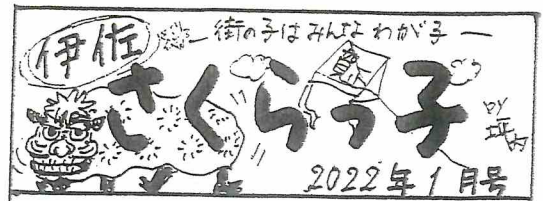 伊佐
―街の子はみんなわが子―
さくらっ子
by 坪内
2022年1月号